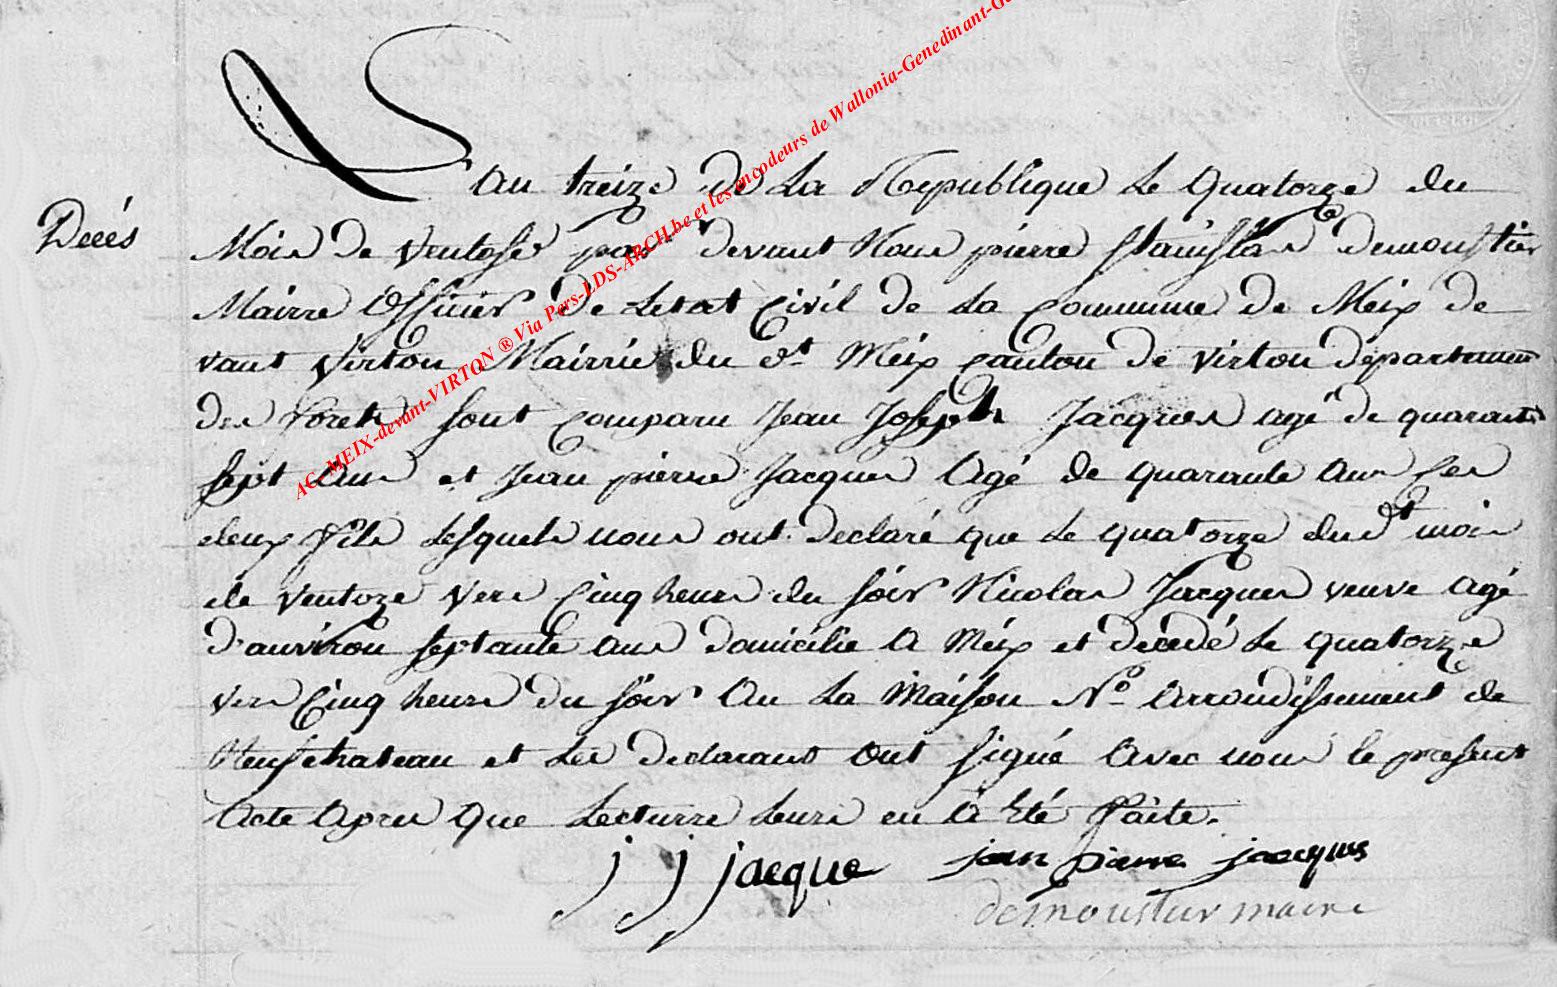 AC-MEIX-devant-VIRTON ® Via Pers-LDS-ARCH.be et les encodeurs de Wallonia-Genedinant-G
L'an treize de La Republique Le Quatorze du
Decés
Mois de Ventose par devant Nous pierre stanislas demoustier
Mairre Officier de Letat Civil de La Commune de Meix de
vant Virton Mairrie du dt Meix Canton de Virton departement
des Forets sont Comparu Jean Joseph Jacques agé de quarante
sept ans et Jean pierre Jacques Agé de quarante ans ses
deux fils Lesquels nous ont declaré que Le quatorze dudt mois
de Ventoze vers Cinq heures du soir Nicolas Jacques veuve agé
d'anviron septante ans domicilie a Meix et decedé Le quatorze
vers Cinq heures du soir An La Maison No. Arrondissement de
Neufchateau et Les declarans Ont signé Avec nous le present
Acte Apres Que Lecturre Leurs en A Eté faite.
j j jacque jean pierre jacques
demoustier maire